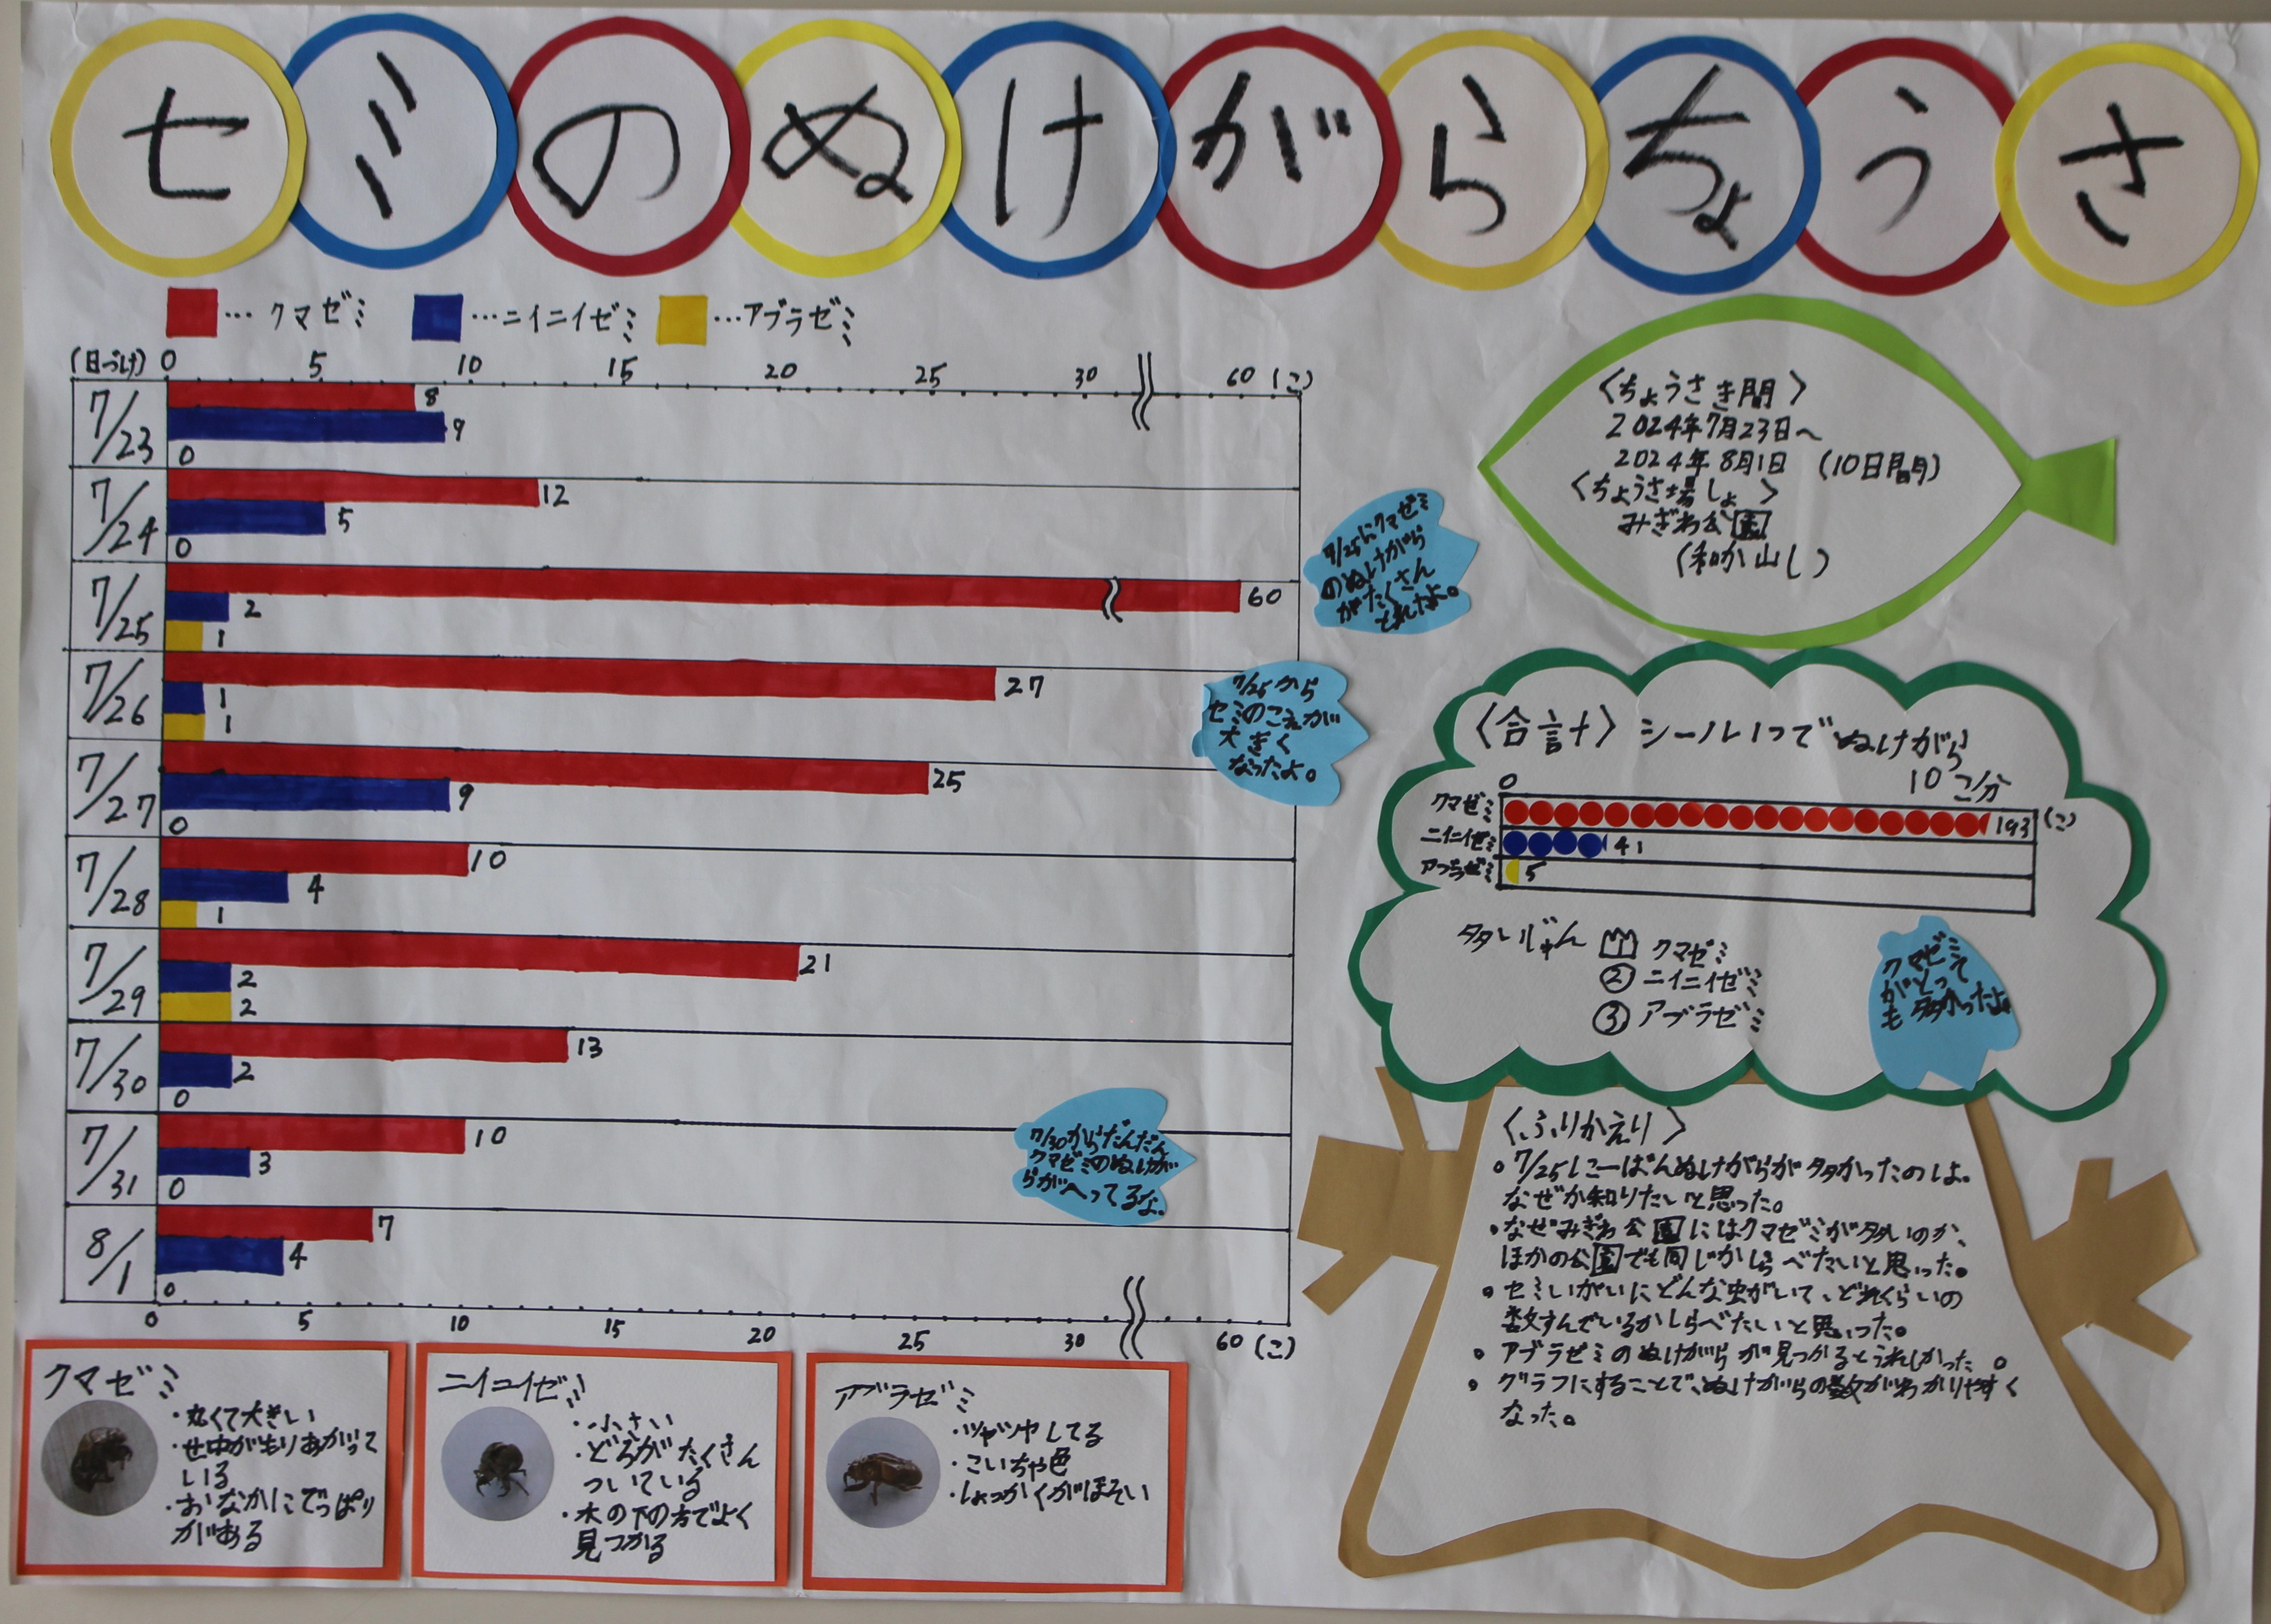 セミのぬけがらちょうさ
…クマゼミ …ニイニイゼミ …アブラゼミ
(日づけ) 0 5 10 15 20 25 30 60 (こ)
7/23 8
9
0
7/24 12
5
0
7/25 60
2
1
7/26 27
1
1
7/27 25
9
0
7/28 10
4
1
7/29 21
2
2
7/30 13
2
0
7/31 10
3
0
8/1 7
4
0
0 5 10 15 20 25 30 60 (こ)
7/25にクマゼミ
のぬけがら
がたくさん
とれたよ。
7/25から
セミのこえが
大きく
なったよ。
7/30からだんだん
クマゼミのぬけが
らがへってるな。
〈ちょうさき間〉
2024年7月23日〜
2024年8月1日 (10日間)
〈ちょうさ場しょ〉
みぎわ公園
(和か山し)
〈合計〉シール1つでぬけがら
10こ分
0
クマゼミ 193 (こ)
ニイニイゼミ 41
アブラゼミ 5
多いじゅん 1 クマゼミ
② ニイニイゼミ
③ アブラゼミ
クマゼミ
がとって
も多かったよ
〈ふりかえり〉
。7/25に一ばんぬけがらが多かったのは、
なぜか知りたいと思った。
・なぜみぎわ公園にはクマゼミが多いのか、
ほかの公園でも同じかしらべたいと思った。
。セミいがいにどんな虫がいて、どれくらいの
数すんでいるかしらべたいと思った。
。アブラゼミのぬけがらが見つかるとうれしかった。
。グラフにすることで、ぬけがらの数がわかりやすく
なった。
クマゼミ
・丸くて大きい
・せ中がもりあがって
いる
・おなかにでっぱり
がある
ニイニイゼミ
・小さい
・どろがたくさん
ついている
・木の下の方でよく
見つかる
アブラゼミ
・ツヤツヤしてる
・こいちゃ色
・しょっかくがほそい